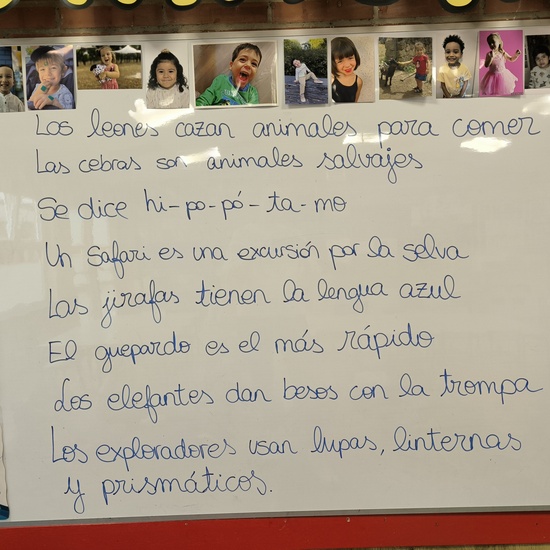 Los leones cazan animales para comer
Las cebras son animales salvajes
Se dice hi-po-pó-ta-mo
Un safari es una excursión por la selva
Las jirafas tienen la lengua azul
El guepardo es el más rápido
Los elefantes dan besos con la trompa
Los exploradores usan lupas, linternas
y prismáticos.